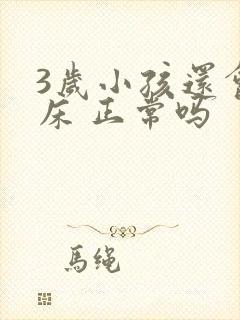 3歲小孩還會
床 正常吗
馬绳